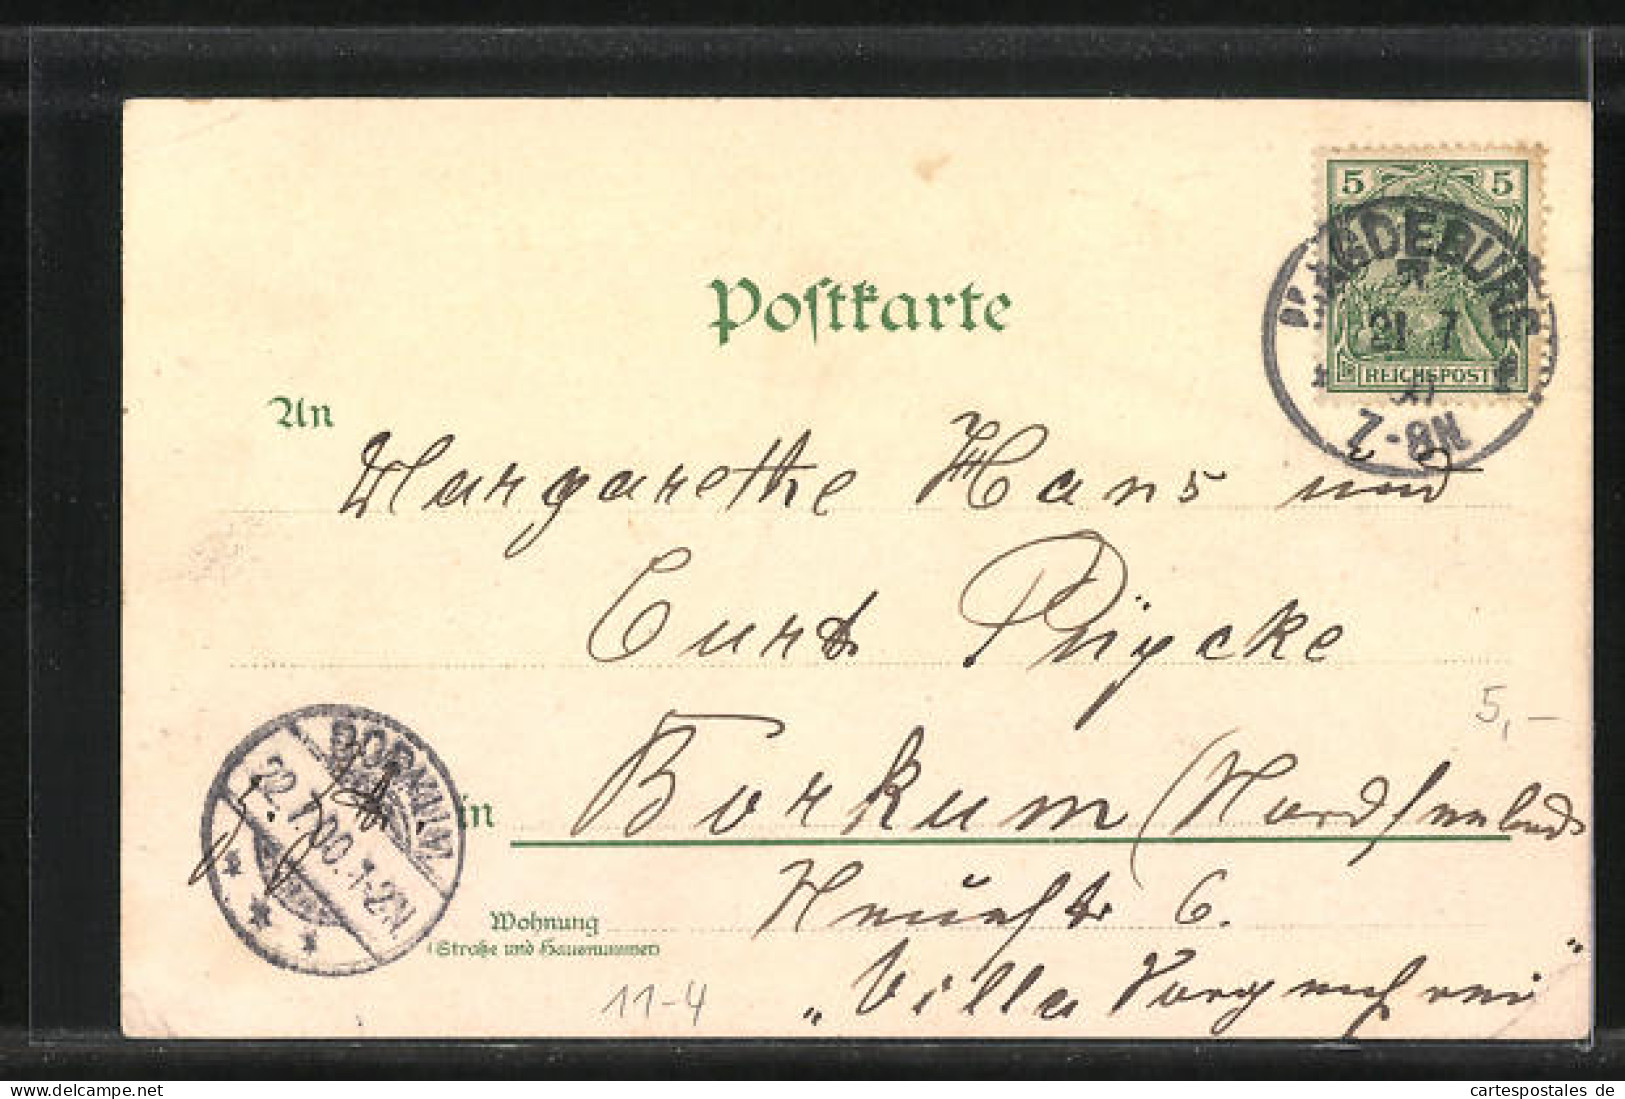 Postkarte
5 5
REICHSPOST
MAGDEBURG
21 7
7-8N
An
Margarethe Hans und
Curt
5,-
BORKUM
22.7.00.1-2N
in Borkum (Nordseebad
Wohnung
(Straße und Hausnummer)
6.
11-4
„Villa
cartespostales de